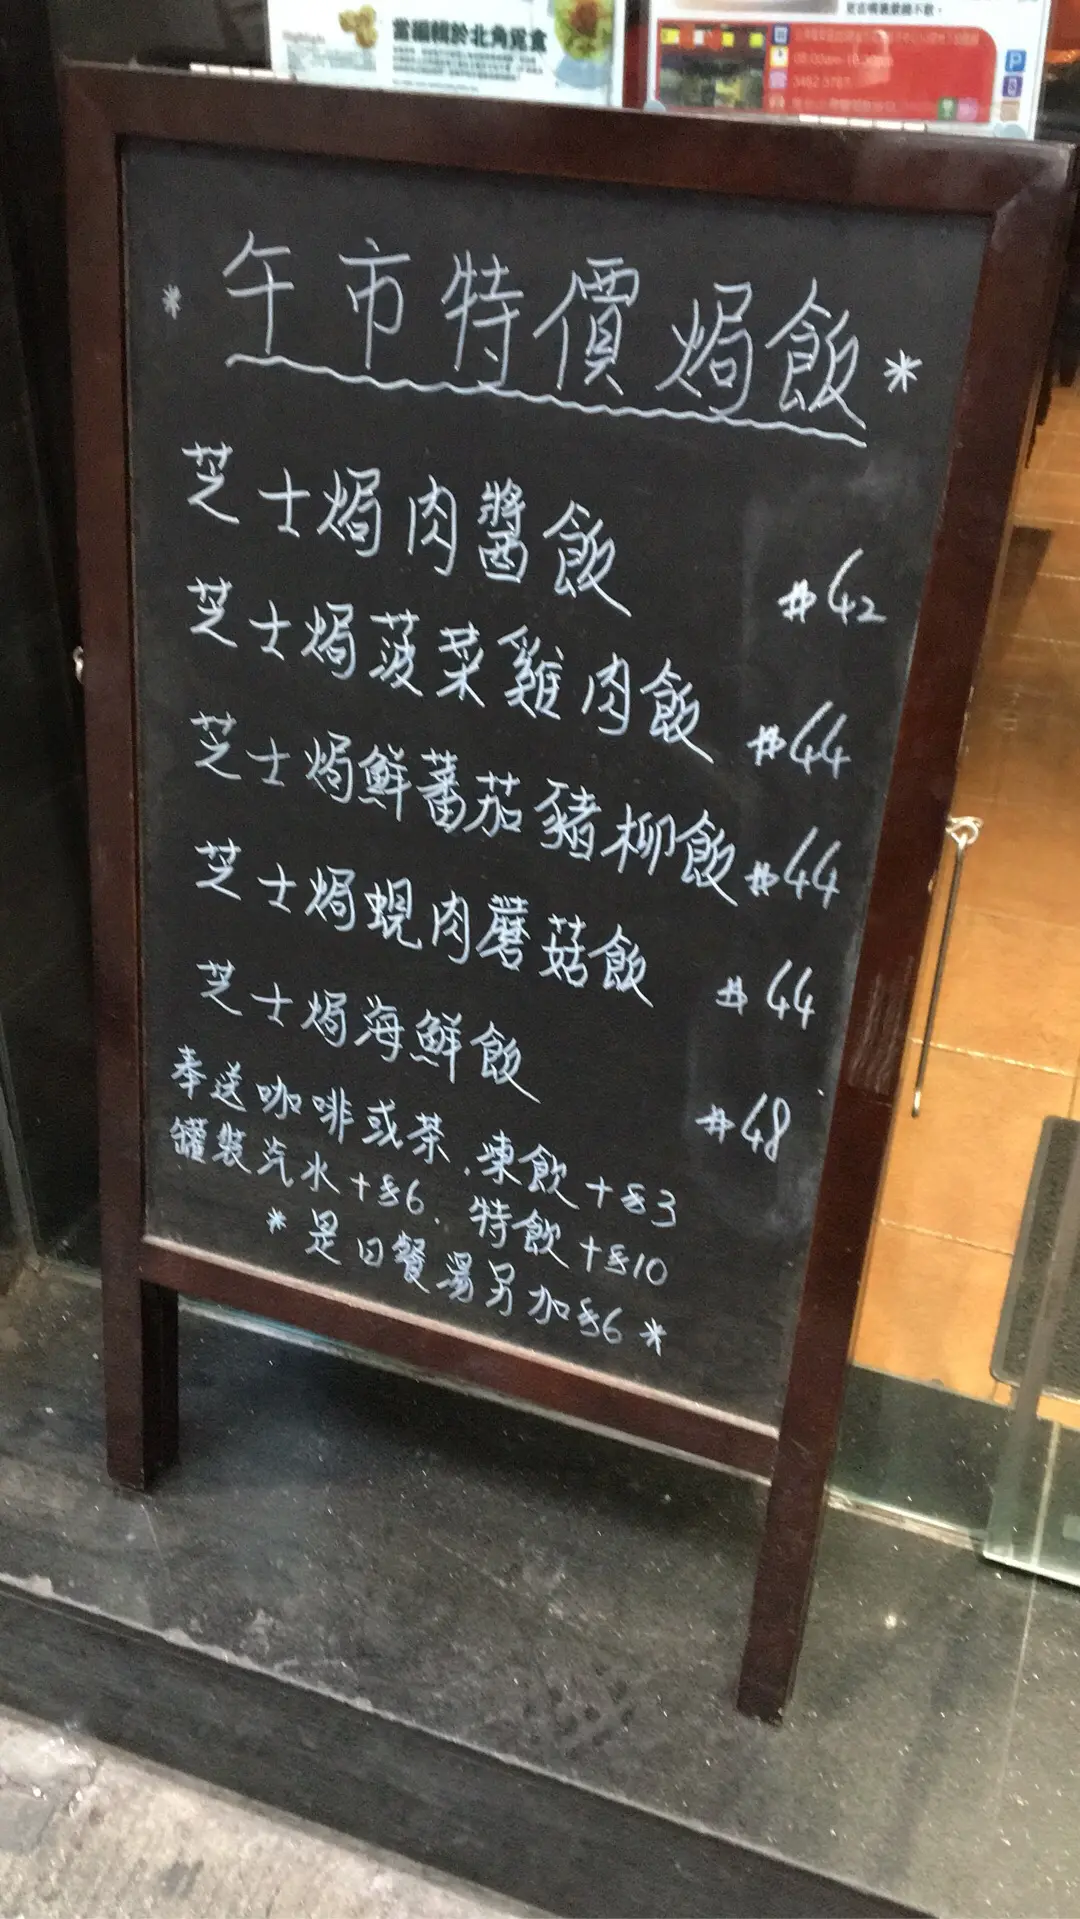 當編輯於北角覓食
* 午市特價焗飯 *
芝士焗肉醬飯 $42
芝士焗菠菜雞肉飯 $44
芝士焗鮮蕃茄豬柳飯 $44
芝士焗蜆肉蘑菇飯 $44
芝士焗海鮮飯 $48
奉送咖啡或茶.凍飲+$3
罐裝汽水+$6.特飲+$10
*是日餐湯另加$6*